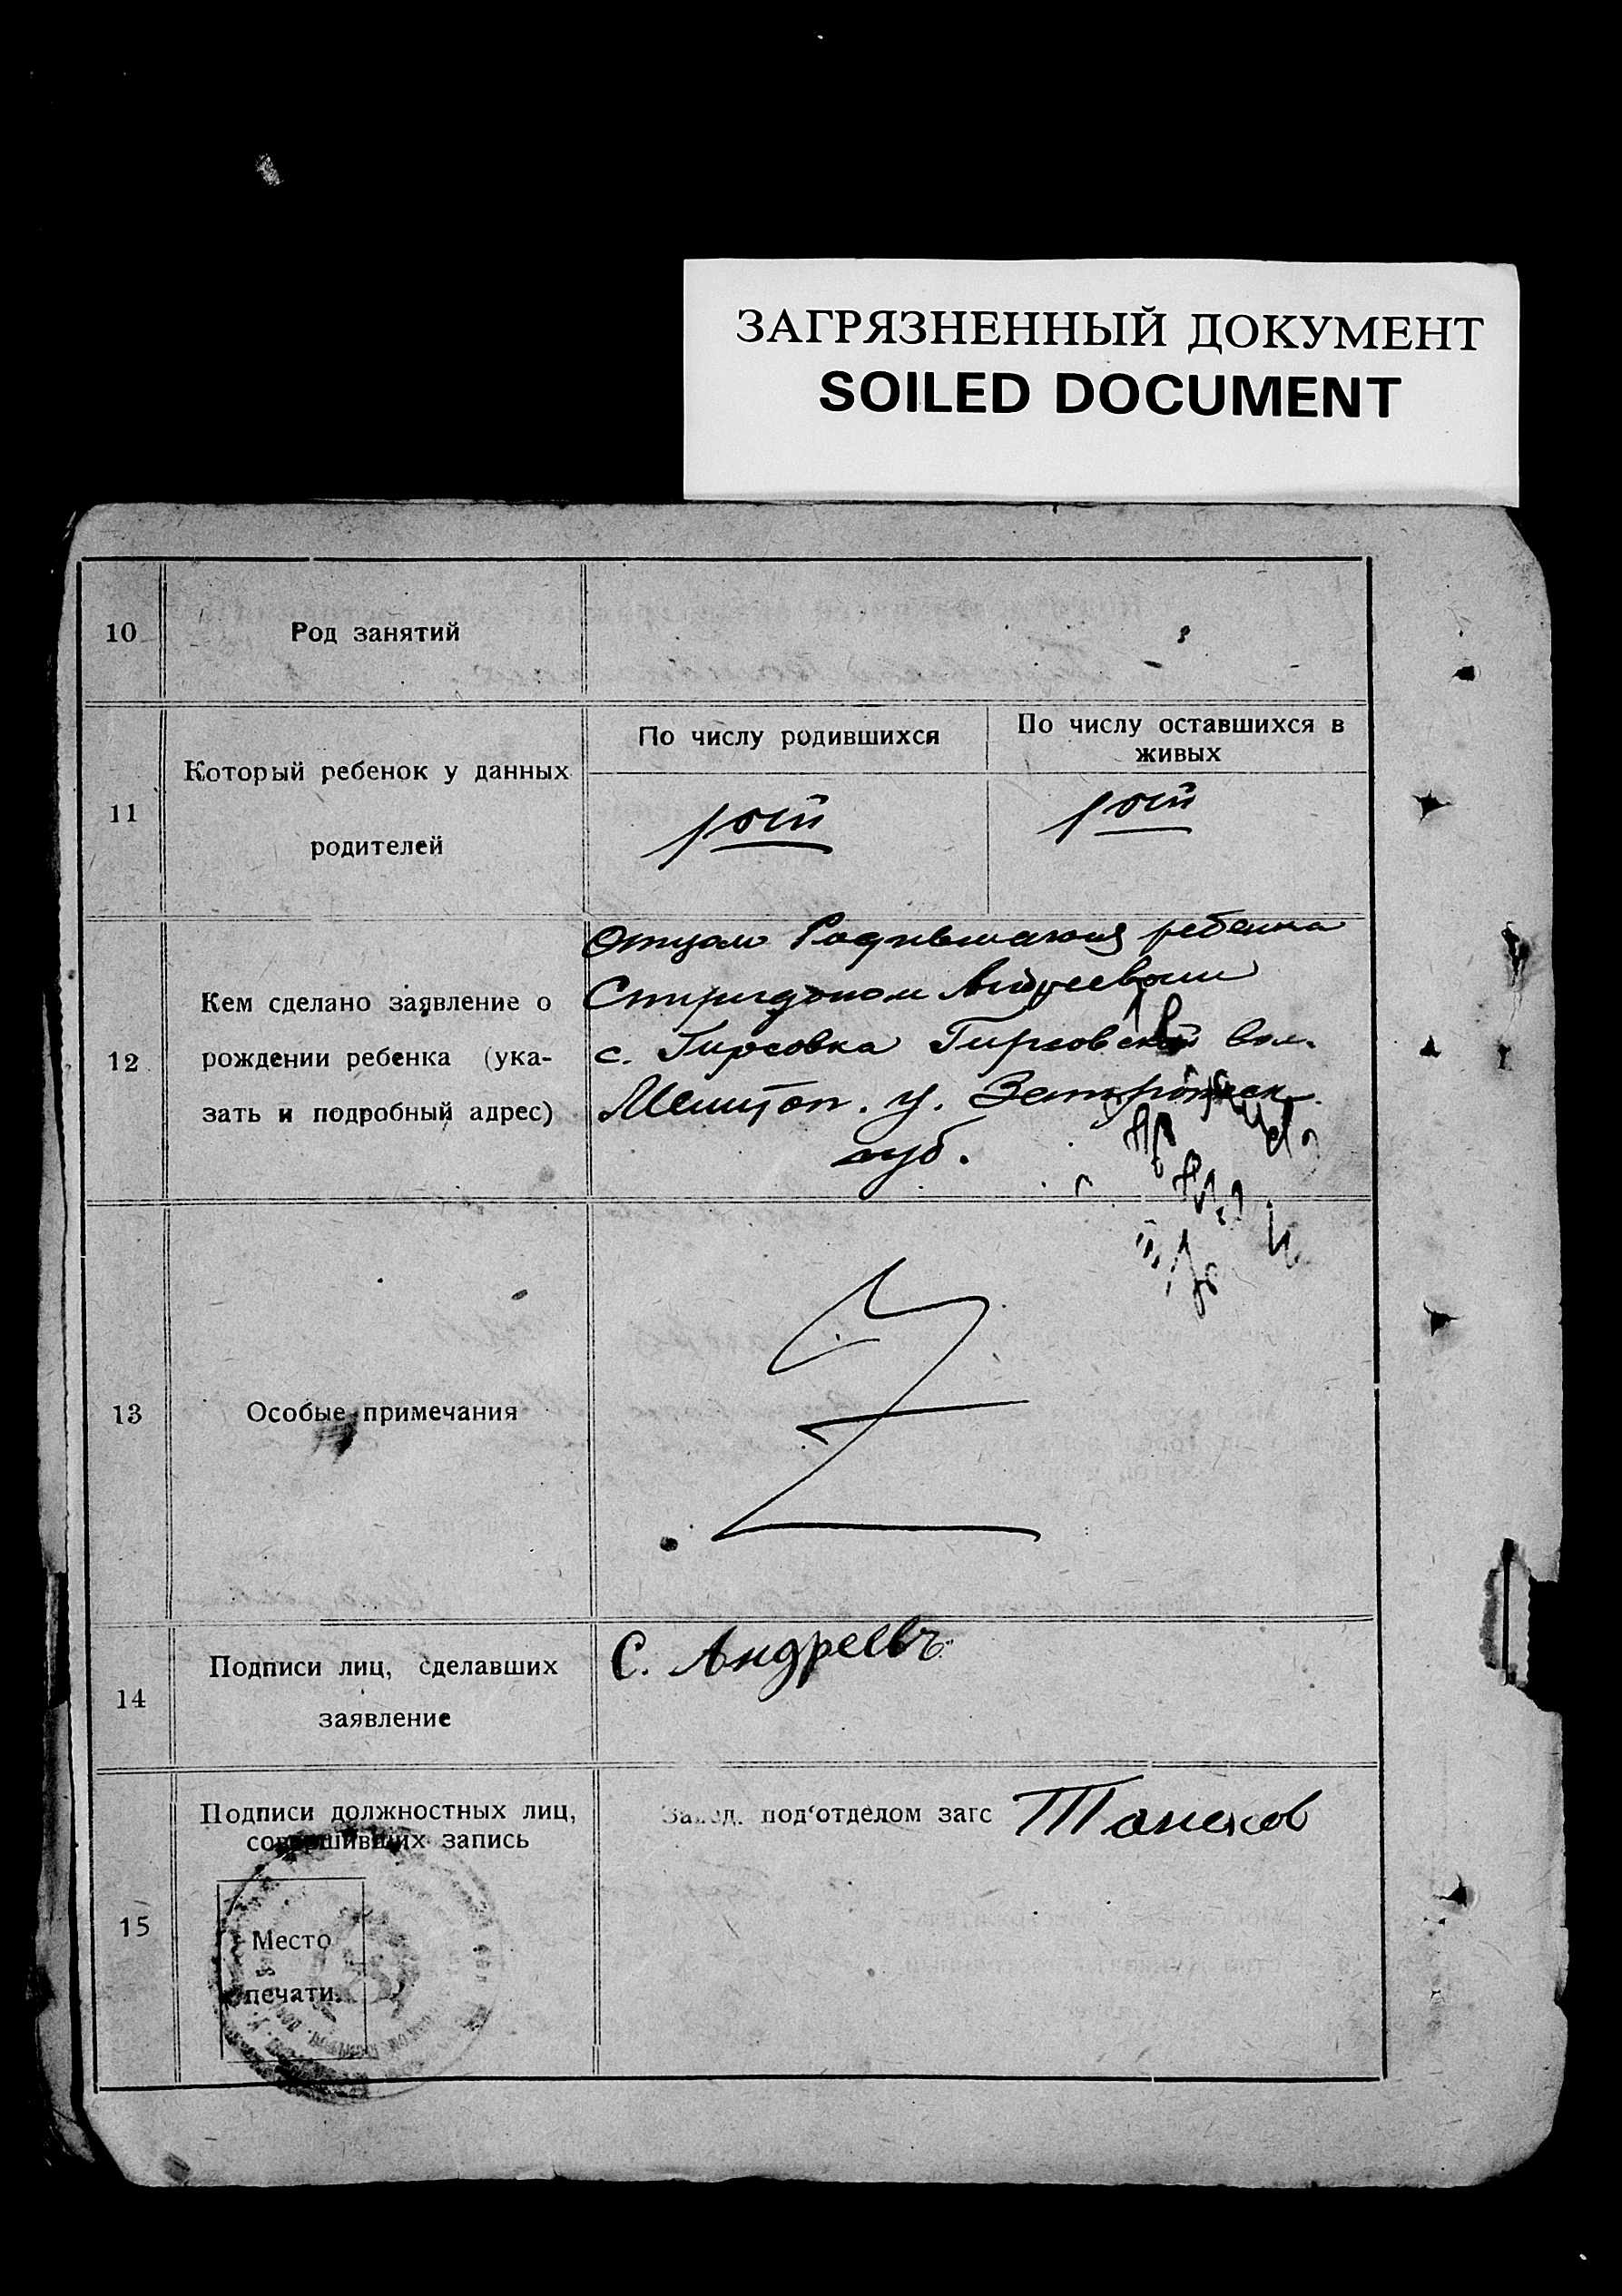 ЗАГРЯЗНЕННЫЙ ДОКУМЕНТ
SOILED DOCUMENT
10
Род занятий
11
Который ребенок у данных
родителей
По числу родившихся
По числу оставшихся в
живых
1ый
1ый
12
Кем сделано заявление о
рождении ребенка (ука-
зать и подробный адрес)
Отцом Родившагося ребенка
Спиридоном Андреевым
с. Гирсовка Гирсовской вол.
Мелитоп. у. Запорожск.
губ.
13
Особые примечания
14
Подписи лиц, сделавших
заявление
С. Андреевъ
15
Подписи должностных лиц,
совершивших запись
Место
печати.
Завед. под'отделом загс